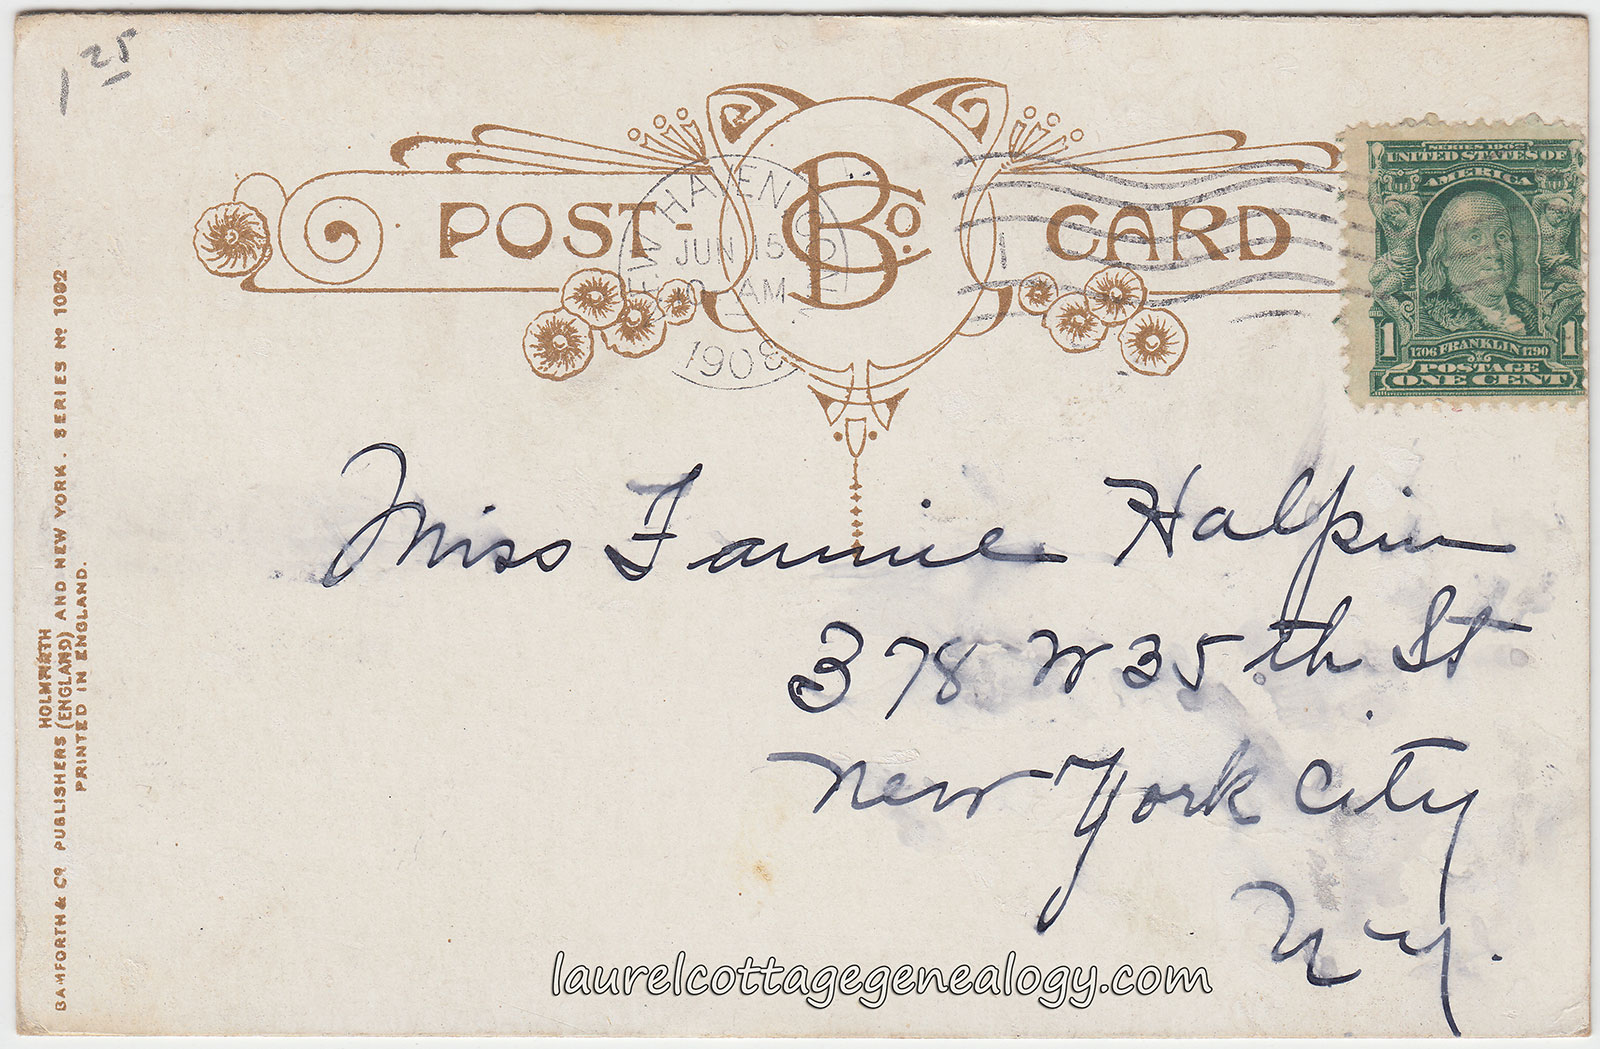 1 25
POST CARD
B Co.
NEW HAVEN, CONN.
JUN 15
AM
1908
1
SERIES 1902
UNITED STATES OF
AMERICA
1 1
1706 FRANKLIN 1790
POSTAGE
ONE CENT
Miss Fannie Halpin
378 W 35th St
New York City
N Y.
HOLMFIRTH
BAMFORTH & Co PUBLISHERS (ENGLAND) AND NEW YORK. SERIES No 1082
PRINTED IN ENGLAND.
laurelcottagegenealogy.com